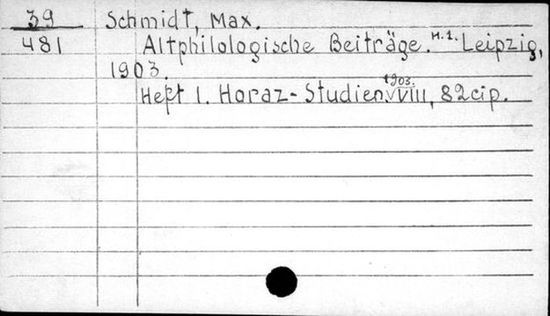 39
481
Schmidt, Max.
Altphilologische Beiträge. H.1. Leipzig,
1903.
Heft 1. Horaz-Studien. 1903. VIII, 82 cip.